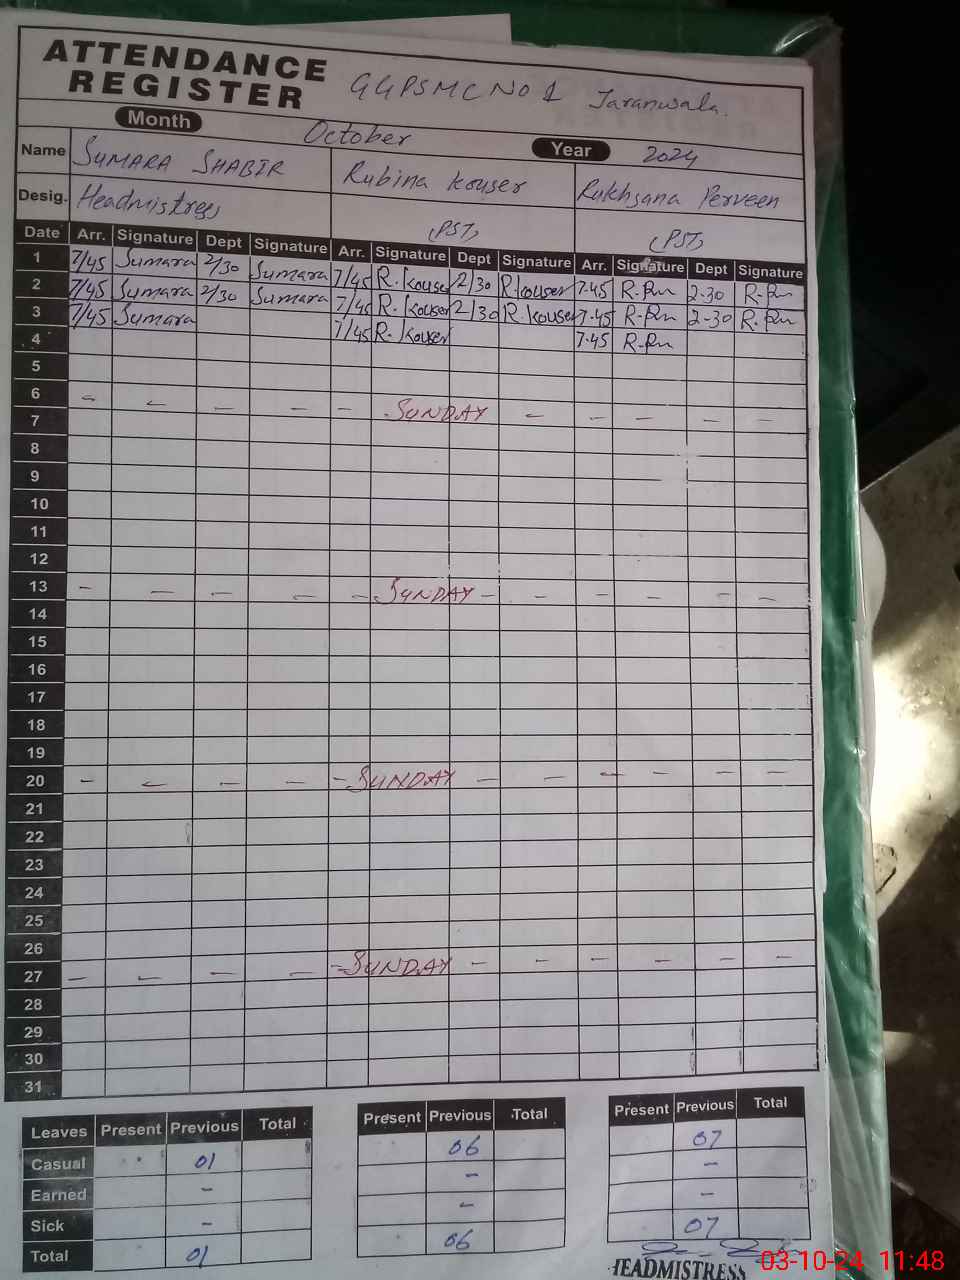 ATTENDANCE
REGISTER
GGPSMC NO 1 Jaranwala
Month October Year 2024
Name SUMARA SHABIR Rubina Kouser Rukhsana Perveen
Desig. Headmistress (PST) (PST)
Date Arr. Signature Dept Signature Arr. Signature Dept Signature Arr. Signature Dept Signature
1 7/45 Sumara 2/30 Sumara 7/45 R. Kouser 2/30 R. Kouser 7.45 R-Pn 2-30 R-Pn
2 7/45 Sumara 2/30 Sumara 7/45 R. Kouser 2/30 R. Kouser 7.45 R-Pn 2-30 R-Pn
3 7/45 Sumara 7/45 R. Kouser 7.45 R-Pn
4
5
6 - - - - - SUNDAY - - - - -
7
8
9
10
11
12
13 - - - - - SUNDAY - - - - - -
14
15
16
17
18
19
20 - - - - - SUNDAY - - - - - -
21
22
23
24
25
26
27 - - - - - SUNDAY - - - - - -
28
29
30
31
Leaves Present Previous Total Present Previous Total Present Previous Total
Casual 01 06 07
Earned - - -
Sick - - -
Total 01 06 07
HEADMISTRESS
03-10-24 11:48